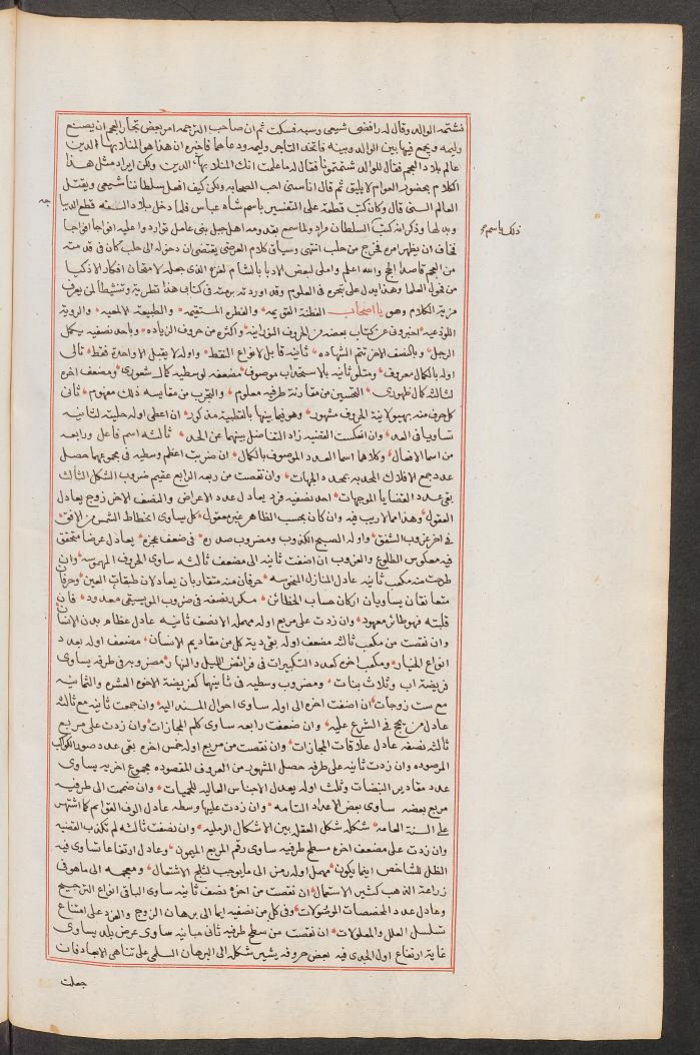 فشتمه الوالد وقال له رافضي شيعي وسبه فسكت ثم ان صاحب الترجمه امر بعض تجار العجم ان يصنع
وليمه ويجمع فيها بين الوالد وبينه فاتخذ التاجر وليمه ودعاهما فاخبره ان هذا هو المنلا بهاء الدين
عالم بلاد العجم فقال للوالد شتمتمونا فقال له ما علمت انك المنلا بهاء الدين ولكن ايراد مثل هذا
الكلام بحضور العوام لا يليق ثم قال انا سني احب الصحابه ولكن كيف افعل سلطاننا شيعي ويقتل
العالم السني قال وكان كتب قطعة على التفسير باسم شاه عباس فلما دخل بلاد السنه قطع الديبا
وبدلها وذكر انه كتب السلطان مراد ولما سمع بقدومه اهل جبل بني عامل تواردوا عليه افواجا افواجا
فخاف ان يظهر امره فخرج من حلب انتهى وسياق كلام العرضي يقتضي ان دخوله الى حلب كان في قدمته
من العجم قاصدا الحج والله اعلم واملى لبعض الادبا بالشام لغزه الذي جعله لامتحان افكار الاذكيا
من فحول العلما وهذا يدل على تبحره في العلوم وقد اوردته برمته في كتابي هذا تطرية وتنشيطا لمن يعرف
مزية الكلام وهو يا اصحاب الفطنة القويمه والفطره المستقيمه والطبيعة الالمعيه والرويه
اللوذعيه اخبروني عن كتاب بعضه من الحروف النورانيه واكثره من حروف الزياده وباحد نصفيه يكمل
الرجل وبالنصف الاخر تتم الشهاده ثانيه قابل لانواع النقط واوله لا يقبل الا واحدة فقط ثالي
اوله بالكمال معروف ومتلو ثانيه بالاستحباب موصوف مضعفه لوسطيه كمال شعوري ومضعف اخره
لثالثه كمال ظهوري التفسير من مقارنة طرفيه معلوم والتقرب من مقايسه ذلك مفهوم ثاني
كل حرف منه بهيولانية الحروف مشهور وهو فيما بينها بالقطبية مذكور ان اعطى اوله حليته لثانيه
تساويا في العد وان انعكست القضيه زاد التفاضل بينهما عن الحد ثالثه اسم فاعل ورابعه
من اسما الافعال وكلاهما اسما العدد الموصوف بالكمال ان ضربت اعظم وسطيه في مجموعها حصل
عدد جمع الافلاك المحدبه بمحدد الجهات وان نقصت من ربعه الرابع عقيم ضروب الشكل الثالث
بقي عدد القضايا الموجهات احد نصفيه فرد يعادل عدد الاعراض والنصف الاخر زوج يعادل
العقول وهذا مما لا ريب فيه وان كان بحسب الظاهر غير معقول كل يساوي انحطاط الشمس من الافق
في اخر غروب الشفق واول الصبح الكذوب ومضروب صدره في ضعف عجزه يعادل عرضا متحقق
فيه معكوس الطلوع والغروب ان اضفت ثانيه الى مضعف ثالثه ساوى الحروف المهموسه وان
طرحت منه مكعب ثانيه عادل المنازل المنحوسه حرفان منه متقاربان يعادلان طبقات العين وحرفان
متعانقان يساويان اركان حساب الخطائين مكرر نصفه في ضروب الموسيقى معدود فان
قلبته فهو طائر معهود وان زدت على مربع اوله مهمله الا نصف ثانيه عادل عظام بدن الانسان
وان نقصت من مكعب ثالثه مضعف اوله بقي دية كل من مقاديم الاسنان مضعف اوله بعدد
انواع الخيار ومكعب اخره كعدد التكبيرات في فرائض الليل والنهار مضروبه في طرفه يساوي
فريضة اب وثلاث بنات ومضروب وسطيه في ثانيها كفريضة الاخوه العشره والثمانيه
مع ست زوجات ان اضفت اخره الى اوله ساوى احوال المسند اليه وان جمعت ثانيه مع ثالثه
عادل من يحج في الشرع عليه وان ضعفت رابعه ساوى كلم المجازات وان زدت على مربع
ثالثه نصفه عادل علاقات المجازات وان نقصت من مربع اوله خمس اخره بقي عدد صور الكواكب
المرصوده وان زدت ثانيه على طرفيه حصل المشهور من الحروف المقصوده مجموع اخريه يساوي
عدد مقادير النبضات وثلث اوله يعدل الاجناس العاليه للحميات وان ضممت الى طرفيه
مربع بعضه ساوى بعض الاعداد التامه وان زدت عليها وسطه عادل الوف القوائم كما اشتهر
على السنة العامه شكله شكل العقله بين الاشكال الرمليه وان نصفت ثالثه لم تكذب القضيه
وان زدت على مضعف اخره مسطح طرفيه ساوى رقم المربع الميمون وعادل ارتفاعا تساوى فيه
الظل للشاخص اينما يكون مهمل اوله رمز الى ما يوجب لثلج الاشتعال ومعجمه الى ماهو في
زراعة الذهب كثير الاستعمال ان نقصت من اخره نصف ثانيه ساوى الباقي انواع الترجيح
وعادل عدد المخصصات الموصولات وفي كل من نصفيه ايما الى برهان الزوج والفرد على امتناع
تسلسل العلل والمعلولات ان نقصت من سطح طرفيه ثاني مبانيه ساوى عرض بلد يساوي
غاية ارتفاع اول الجدي فيه بعض حروفه يشير شكله الى البرهان السلمي على تناهي الابعاد فان
جعلت
ذلك باسم